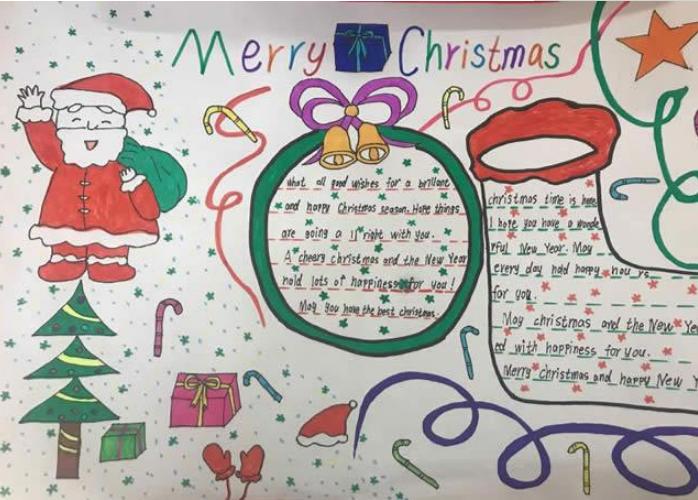 Merry Christmas
what all good wishes for a brillant
and happy Christmas season. Hope things
are going a ll right with you.
A cheary christmas and the New Year
hold lots of happiness for you!
May you have the best christmas.
christmas time is here
I hope you have a wonde
rful New Year. May
every day hold happy hou rs
for you.
May christmas and the New Ye
ed with happiness for you.
Merry Christmas and happy New Y